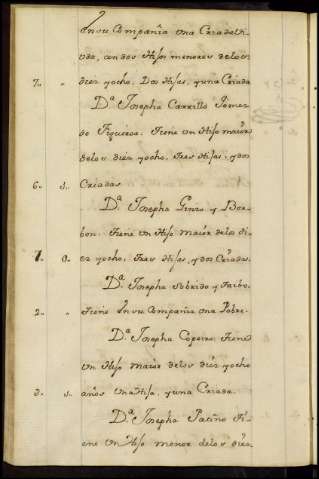 En su Compañia una Criada Vi-
uda, con dos Hijos menores delos
diez yocho, Dos Hijas, yuna Criada
7.. "
D.ª Josepha Carrillo Gomez
de Figueroa. tiene un Hijo maior
delos diez yocho, tres Hijas, y dos
6.. s. Criadas
D.ª Josepha Ginis y Bor-
bon. tiene un Hijo maior delos di-
7. o. ez yocho. tres Hijas, y dos Criadas.
D.ª Josepha Sobrido y Faibo.
2.. " tiene En su Compañia una Pobre.
D.ª Josepha Copeiro. tiene
un Hijo maior delos diez yocho
3.. s. años una Hija, y una Criada.
D.ª Josepha Patiño ti-
ene un Hijo menor delos diez